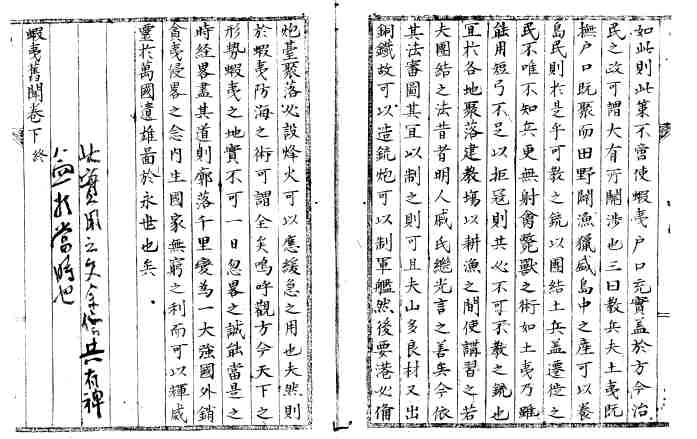 如此則此業不啻使蝦夷戶口充實蓋於方今治
民之政可謂大有所關涉也三曰教兵夫土夷既
撫戶口既聚而田野闢漁獵盛島中之產可以養
島民則於是乎可教之銃以團結土兵蓋邊徼之
民不唯不知兵更無射禽斃獸之術如土夷乃雖
能用短弓不足以拒寇則共必不可不教之銃也
宜於各地聚落建教場以耕漁之間使講習之若
夫團結之法昔者明人戚氏繼光言之善矣今依
其法審圖其宜以制之則可且夫山多良材又出
銅鐵故可以造銃炮可以制軍艦然後要港必備
炮臺聚落必設烽火可以應緩急之用也夫然則
於蝦夷防海之術可謂全矣嗚呼觀方今天下之
形勢蝦夷之地實不可一日忽畧之誠能當是之
時經畧盡其道則廓落千里變為一大強國外銷
貪夷侵畧之念內生國家無窮之利而可以輝威
靈於萬國遺雄圖於永世也矣
蝦夷舊聞卷下終
此實用之文余信其有裨
益於當時也